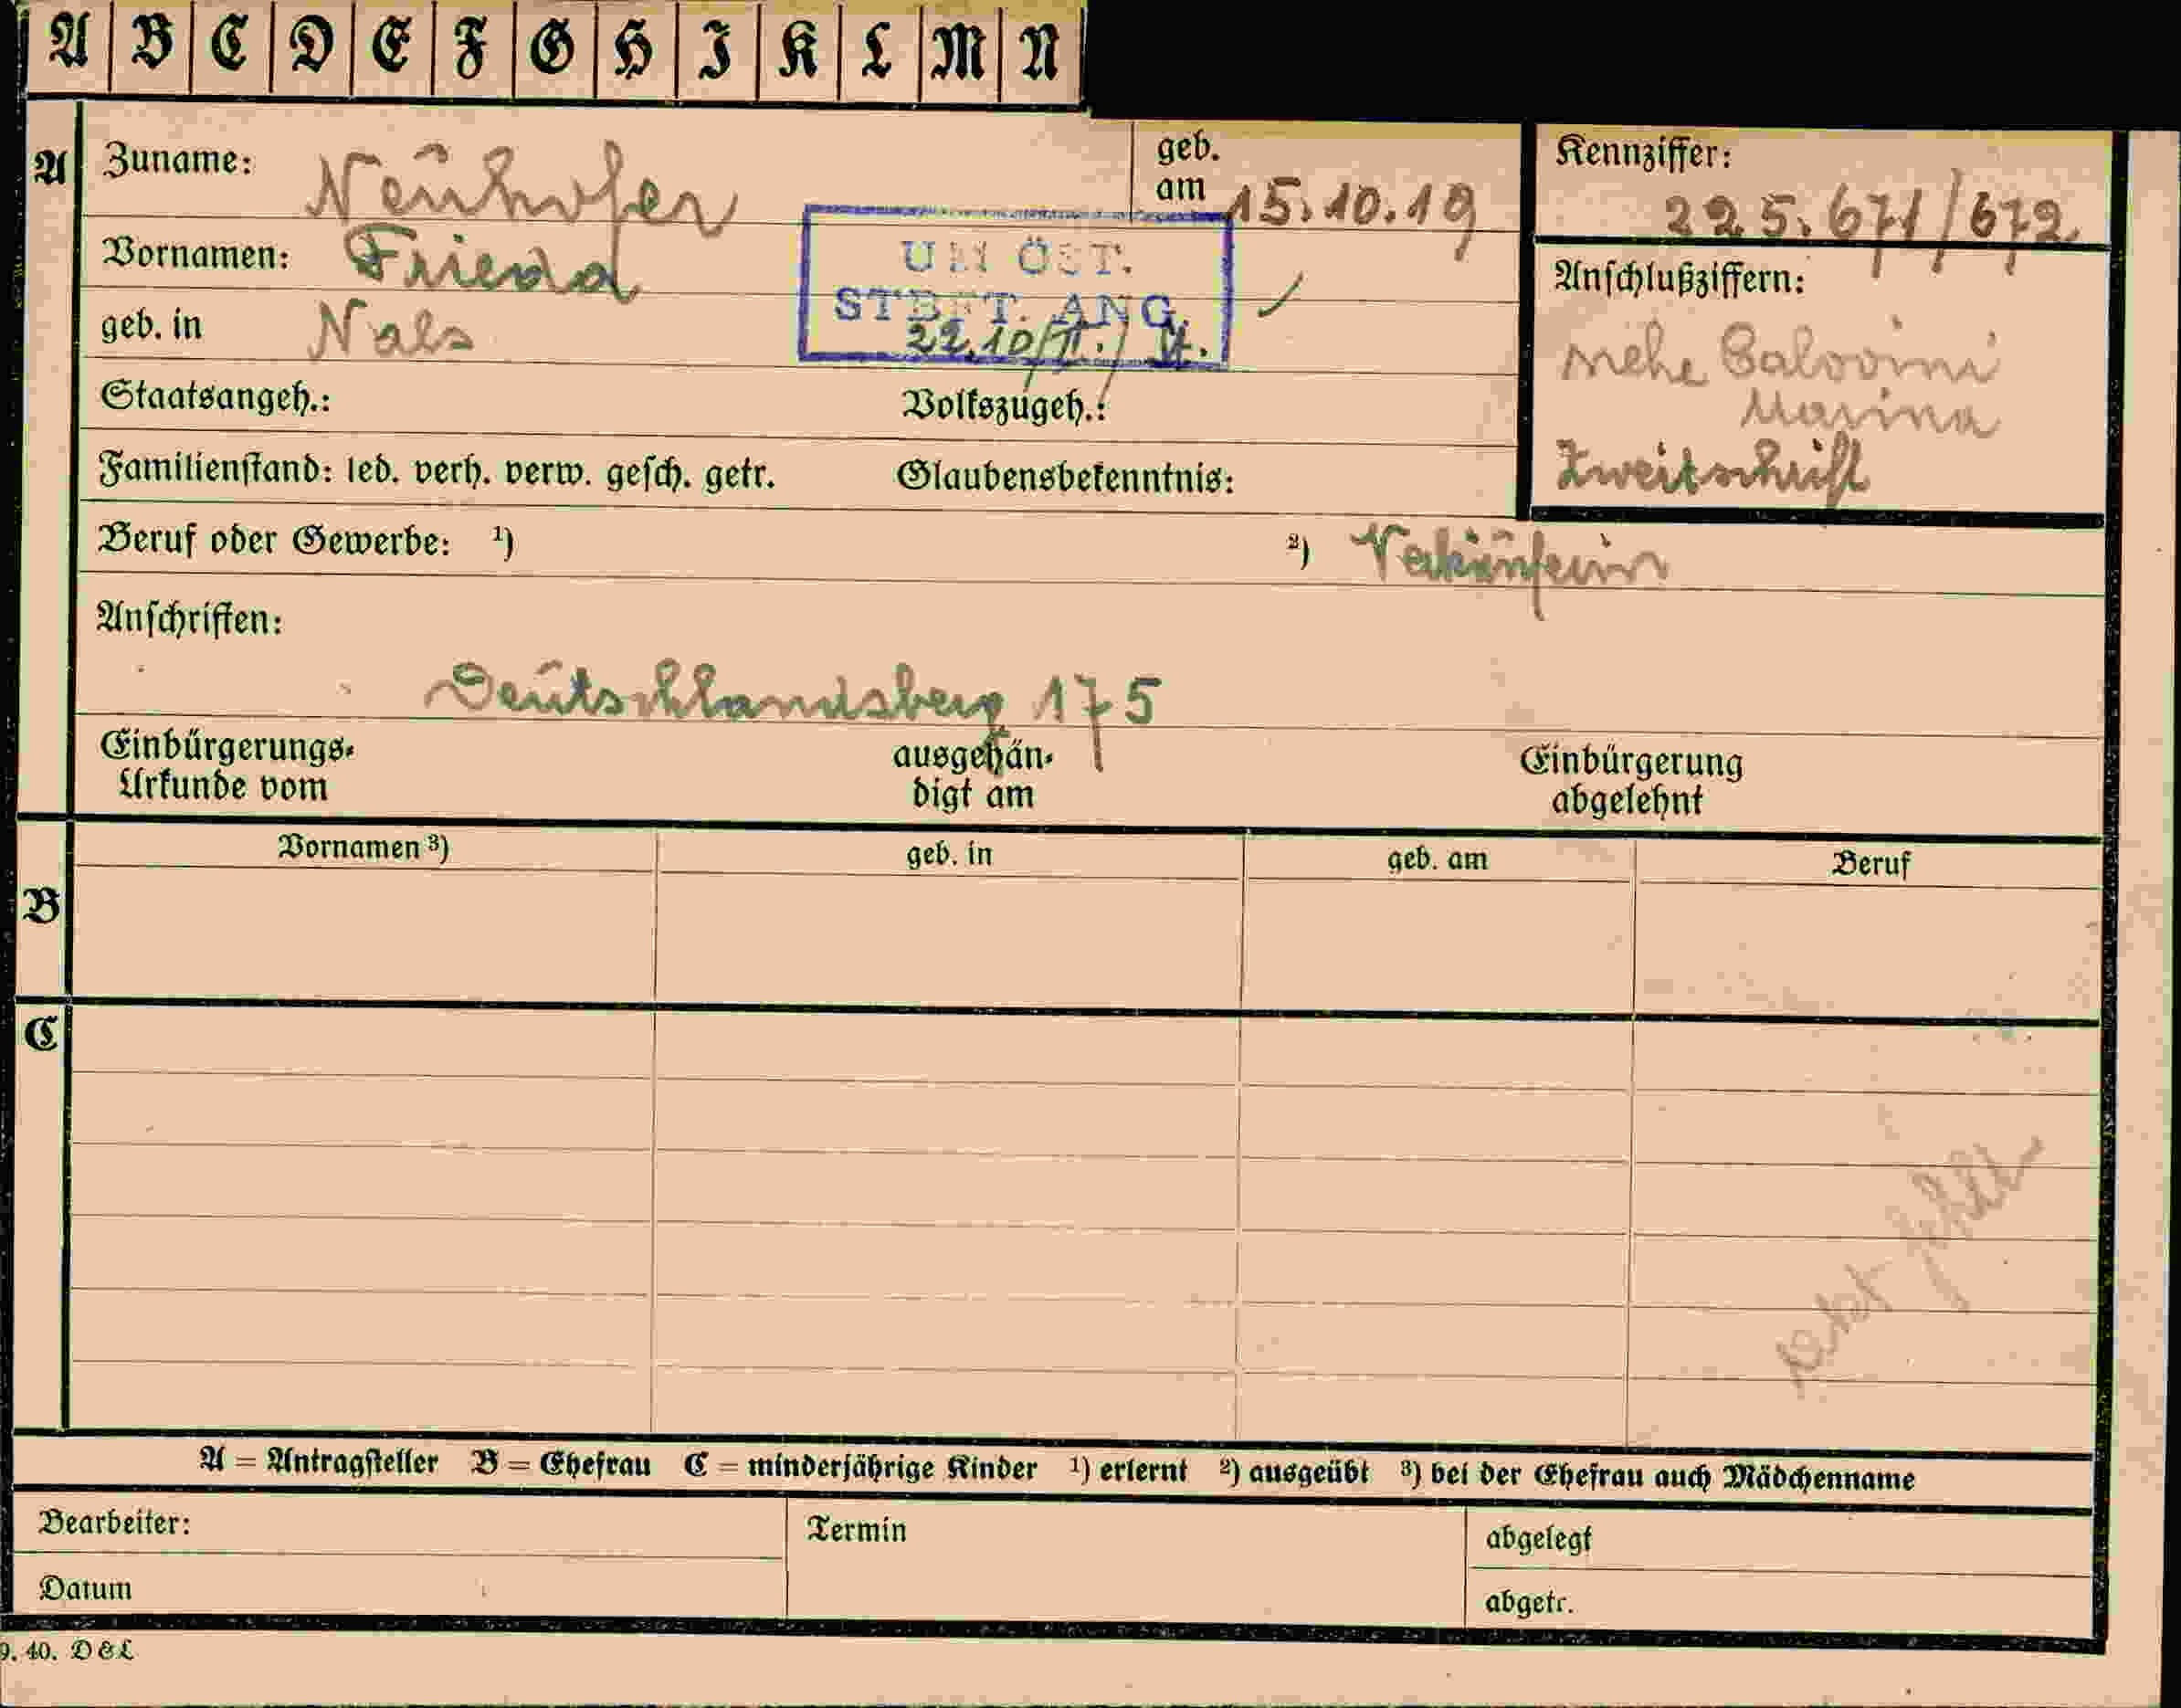 A B C D E F G H I K L M N
A
Zuname: Neuhofer
geb. am 15.10.19
Kennziffer: 225.671/672
Vornamen: Frieda
UM ÖST.
STBFT. ANG.
22.10/II./
geb. in Nals
Anschlußziffern:
siehe
Marina
Zweitschrift
Staatsangeh.: Volkszugeh.:
Familienstand: led. verh. verw. gesch. getr. Glaubensbekenntnis:
Beruf oder Gewerbe: ¹) ²) Verkäuferin
Anschriften:
Deutschlandsberg 175
Einbürgerungs-Urkunde vom ausgehändigt am Einbürgerung abgelehnt
B
Vornamen ³) geb. in geb. am Beruf
C
A = Antragsteller B = Ehefrau C = minderjährige Kinder ¹) erlernt ²) ausgeübt ³) bei der Ehefrau auch Mädchenname
Bearbeiter: Termin abgelegt
Datum abgetr.
9. 40. D & L